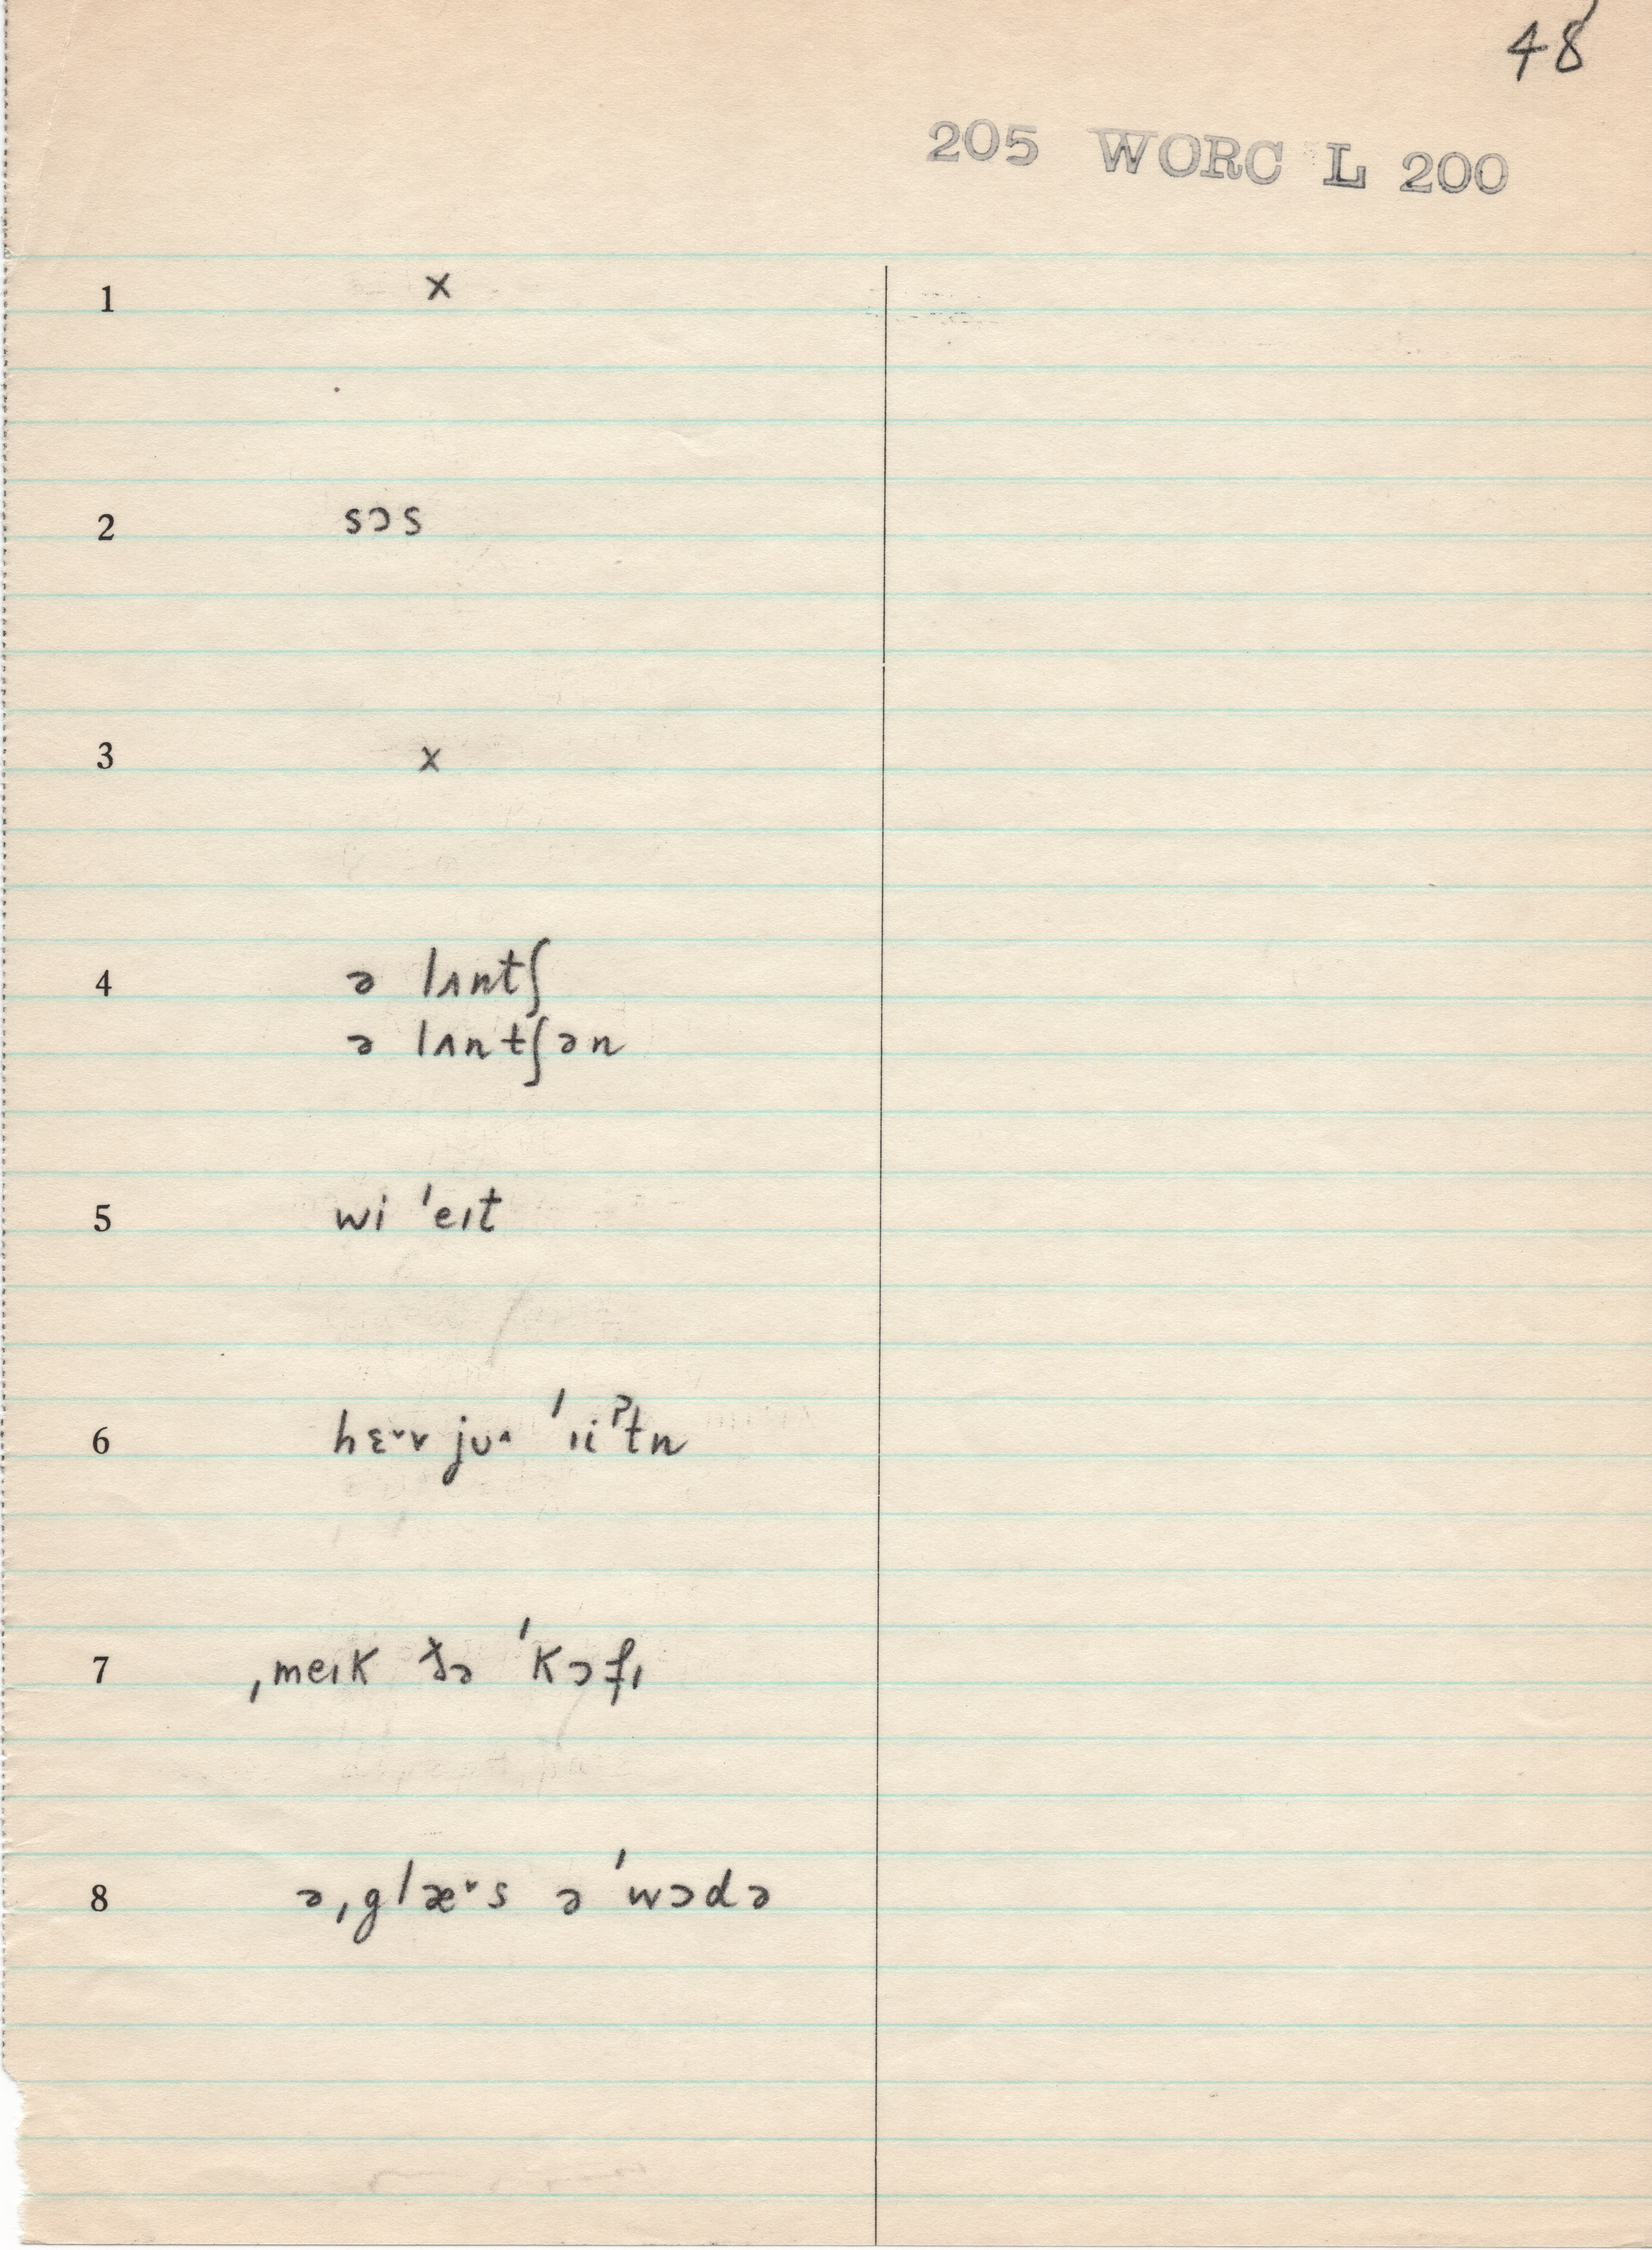 48
205 WORC L 200
1 x
2 sɔs
3 x
4 ə lʌntʃ
ə lʌntʃən
5 wi ˈeɪt
6 hɛ˅v juʌ ˈɪiˀtn
7 ˌmeɪk ðə ˈkɔfɪ
8 əˌglæ˅s ə ˈwɔdə